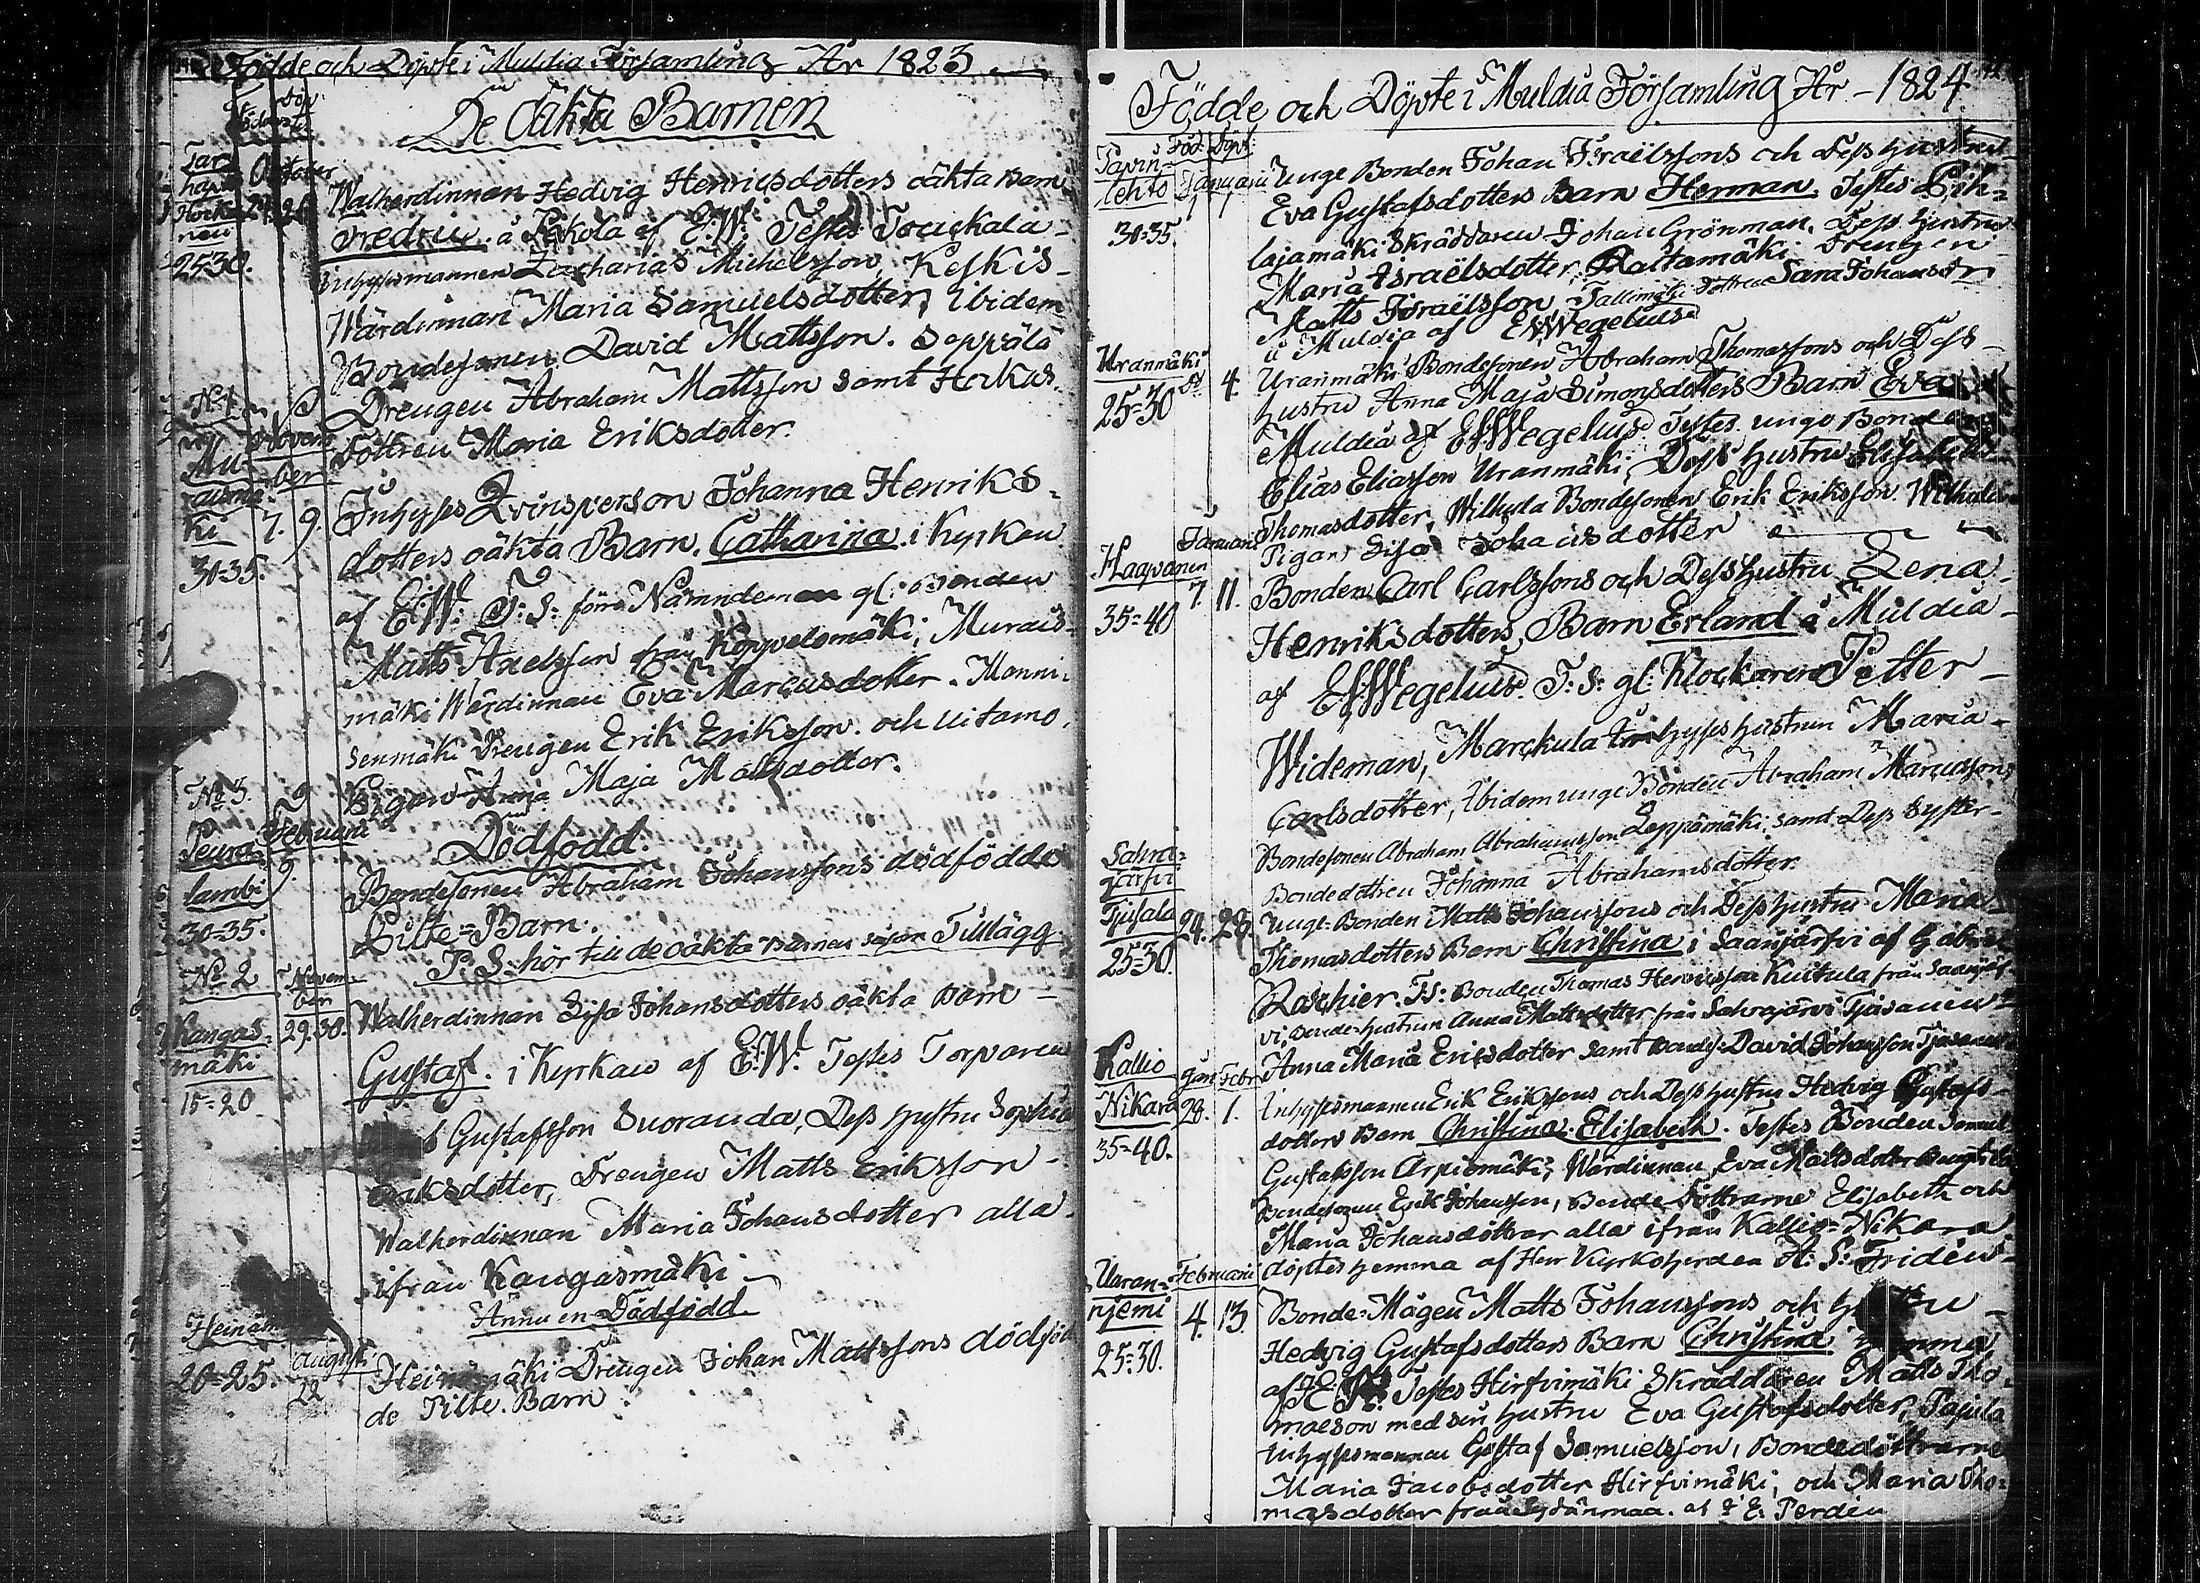 Födde och Döpte i Muldia Församling År 1823
De Oäkta Barnen
October
24. 26
25-30.
Walherdinnan Hedvig Henricsdotters oäkta Barn
Fredric. á Pekola af E:W: Testes
Inhyssmannen Zacharias Michelsson, Keskis-
Wärdinnan Maria Samuelsdotter, ibidem
Bondesonen David Mattsson. Seppälä
Drengen Abraham Mattsson samt
Dottren Maria Eriksdotter.
Novem
ber
7. 9.
30-35.
Inhyses Qvinsperson Johanna Henriks-
dotters oäkta Barn. Catharina i Kyrkan
af E:W: T: S: förra Nämndeman gl: Bonden
Matts Axelsson från Koppelomäki, Murais-
mäki Wärdinnan Eva Marcusdotter. Manni-
senmäki Drengen Erik Eriksson. och Uitamo
Pigan Anna Maja Mattsdotter.
Dödfödd.
No 3.
Peura
lambi
30-35.
Februarii
9.
Bondesonen Abraham Johanssons dödfödde
Gilte=Barn.
P. S. hör till de oäkta Barnen såsom Tillägg
No 2
Kangas-
mäki
15=20
Novem-
ber
29. 30.
Walherdinnan Lisa Johansdotters oäkta Barn
Gustaf. i Kyrkan af E:W: Testes Torparen
Gustafsson Suoranda, Dess hustru Sophia
Eriksdotter, Drengen Matts Eriksson
Walherdinnan Maria Johansdotter alla
ifrån Kangasmäki
Ännu en Dödfödd.
20=25.
August
22
Heinämäki Drengen Johan Mattssons dödföd
de Pilte. Barn
Födde och Döpte i Muldia Församling År 1824
Föd: Döpt:
Januarii
1 1
30=35.
Unge Bonden Johan Israëlssons och Dess hustru
Eva Gustafsdotters Barn Herman. Testes Pih-
lajamäki Skräddaren Johan Grönman, Dess hustru
Maria Israëlsdotter, Raitamäki Drengen
Matts Israëlsson, Tallimäki dottren Sara Johansdr
á Muldia af EWWegelius
Uranmäki
25=30
4.
Uranmäki Bondesonen Abraham Thomassons och Dess
hustru Anna Maja Simonsdotters Barn Eva
Muldia af EWWegelius Testes unge Bonden
Elias Eliasson Uranmäki, Dess hustru Elisabeth
Thomasdotter, Wilkula Bondesonen Erik Eriksson Wilkula
Pigan Lisa Johansdotter
Haapanen
35=40
Januarii
7. 11.
Bonden Carl Carlssons och Dess hustru Lena
Henriksdotters Barn Erland á Muldia
af EWWegelius. T: S: gl: Klockaren Petter
Wideman, Marckula Inhysses hustrun Maria
Carlsdotter, ibidem unge Bonden Abraham Marcusson,
Bondesonen Abraham Abrahamsson Leppämäki samt Dess Syster
Bondedottren Johanna Abrahamsdotter.
Sahra-
jarfvi
Tjusala
25=30.
24. 29.
Unge Bonden Matts Johanssons och Dess hustru Maria
Thomasdotters Barn Christina i Saarijärfvi af Gabriel
Roschier. T:S: Bonden Thomas Henricsson Kuukula från Saarijär-
vi, Bonde hustrun Anna Mattsdotter från Sahrajärvi Tjusanen
Anna Maria Ericsdotter samt Bonde David Johansson
Kallio
Nikara
35=40.
Jan: Febr:
28. 1.
Inhyssmannen Erik Erikssons och Dess hustru Hedvig Gustafs-
dotters Barn Christina Elisabeth. Testes Bonden Samuel
Gustafsson Arpiomäki, Wärdinnan Eva Mattsdotter
Bondesonen Erik Johansson, Bonde Döttrarne Elisabeth och
Maria Johansdöttrar alla ifrån Kallio=Nikara
döptes hemma af Herr Kyrkoherden A: S: Fridén
25=30.
Februarii
4. 13.
Bonde=Mågen Matts Johanssons och
Hedvig Gustafsdotters Barn Christina
Testes Hirfvimäki Skräddaren Matts Tho-
masson med sin hustru Eva Gustafsdotter, Pajula
Inhyssmannen Gustaf Samuelsson, Bondedöttrarne
Maria Jacobsdotter Hirfvimäki, och Maria Tho-
masdotter från Sydänmaa.